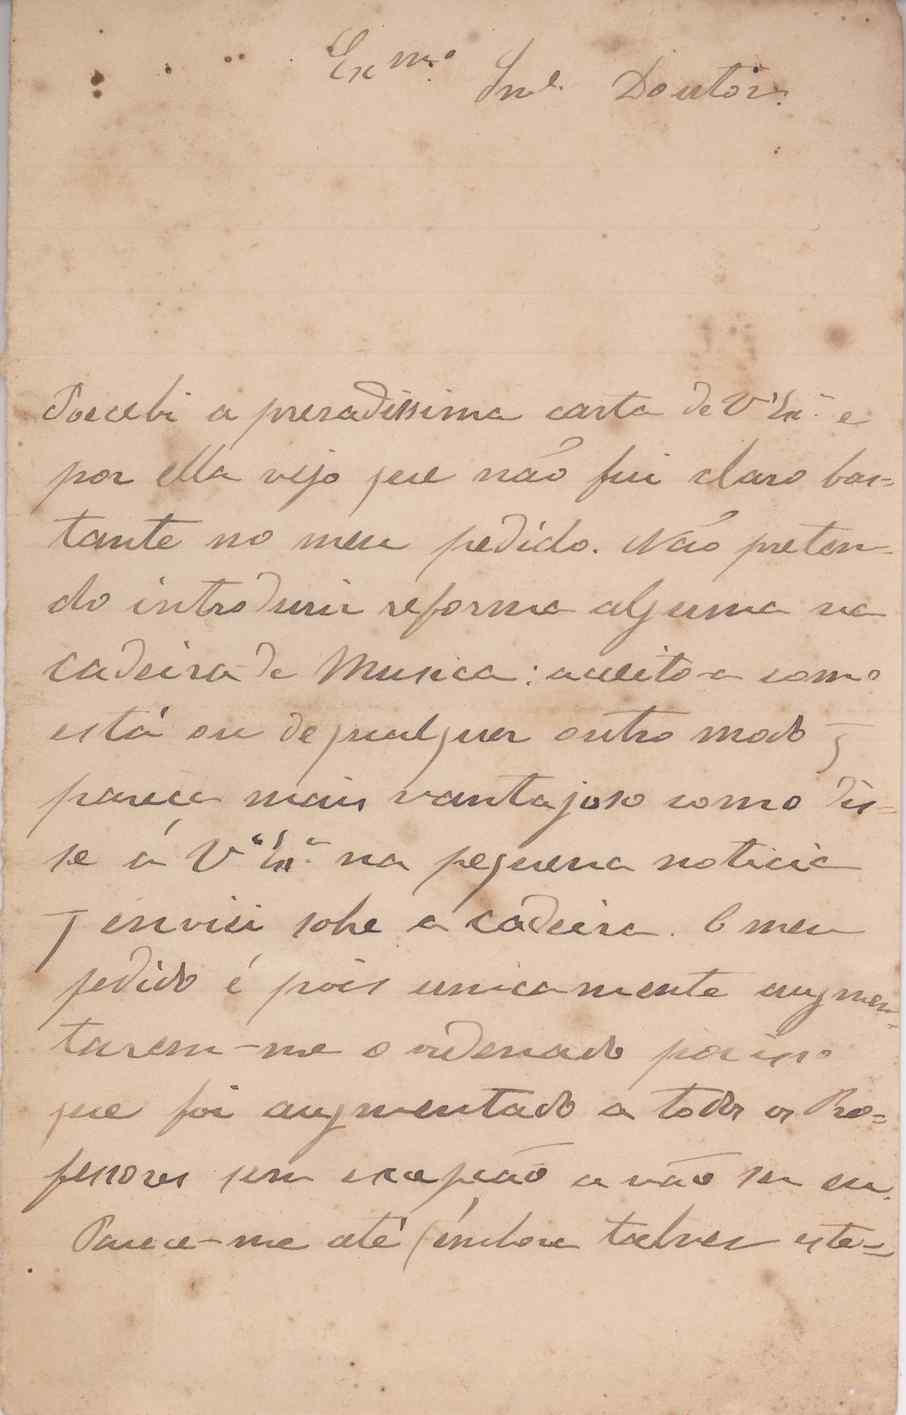 Exmo. Snr. Doutor.
Recebi a presadissima carta de Vª Exª e
por ella vejo que não fui claro bas-
tante no meu pedido. Não preten-
do introdusir reforma alguma na
cadeira de Musica: acceito-a como
está ou de qualquer outro modo q
pareça mais vantajoso como dis-
se á Vª Exª na pequena noticia
q enviei sobre a cadeira. O meu
pedido é pois unicamente augmen-
tarem-me o ordenado por isso
que foi augmentado a todos os Pro-
fessores sem excepção a não ser eu.
Parece-me até (embora talvez este-